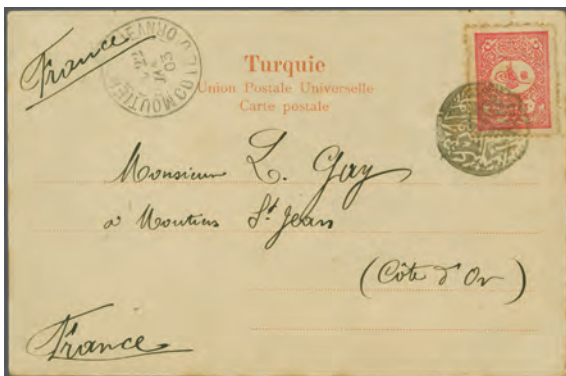 France
Turquie
Union Postale Universelle
Carte postale
Monsieur L. Gay
à Moutiers St Jean
(Côte d'Or)
France